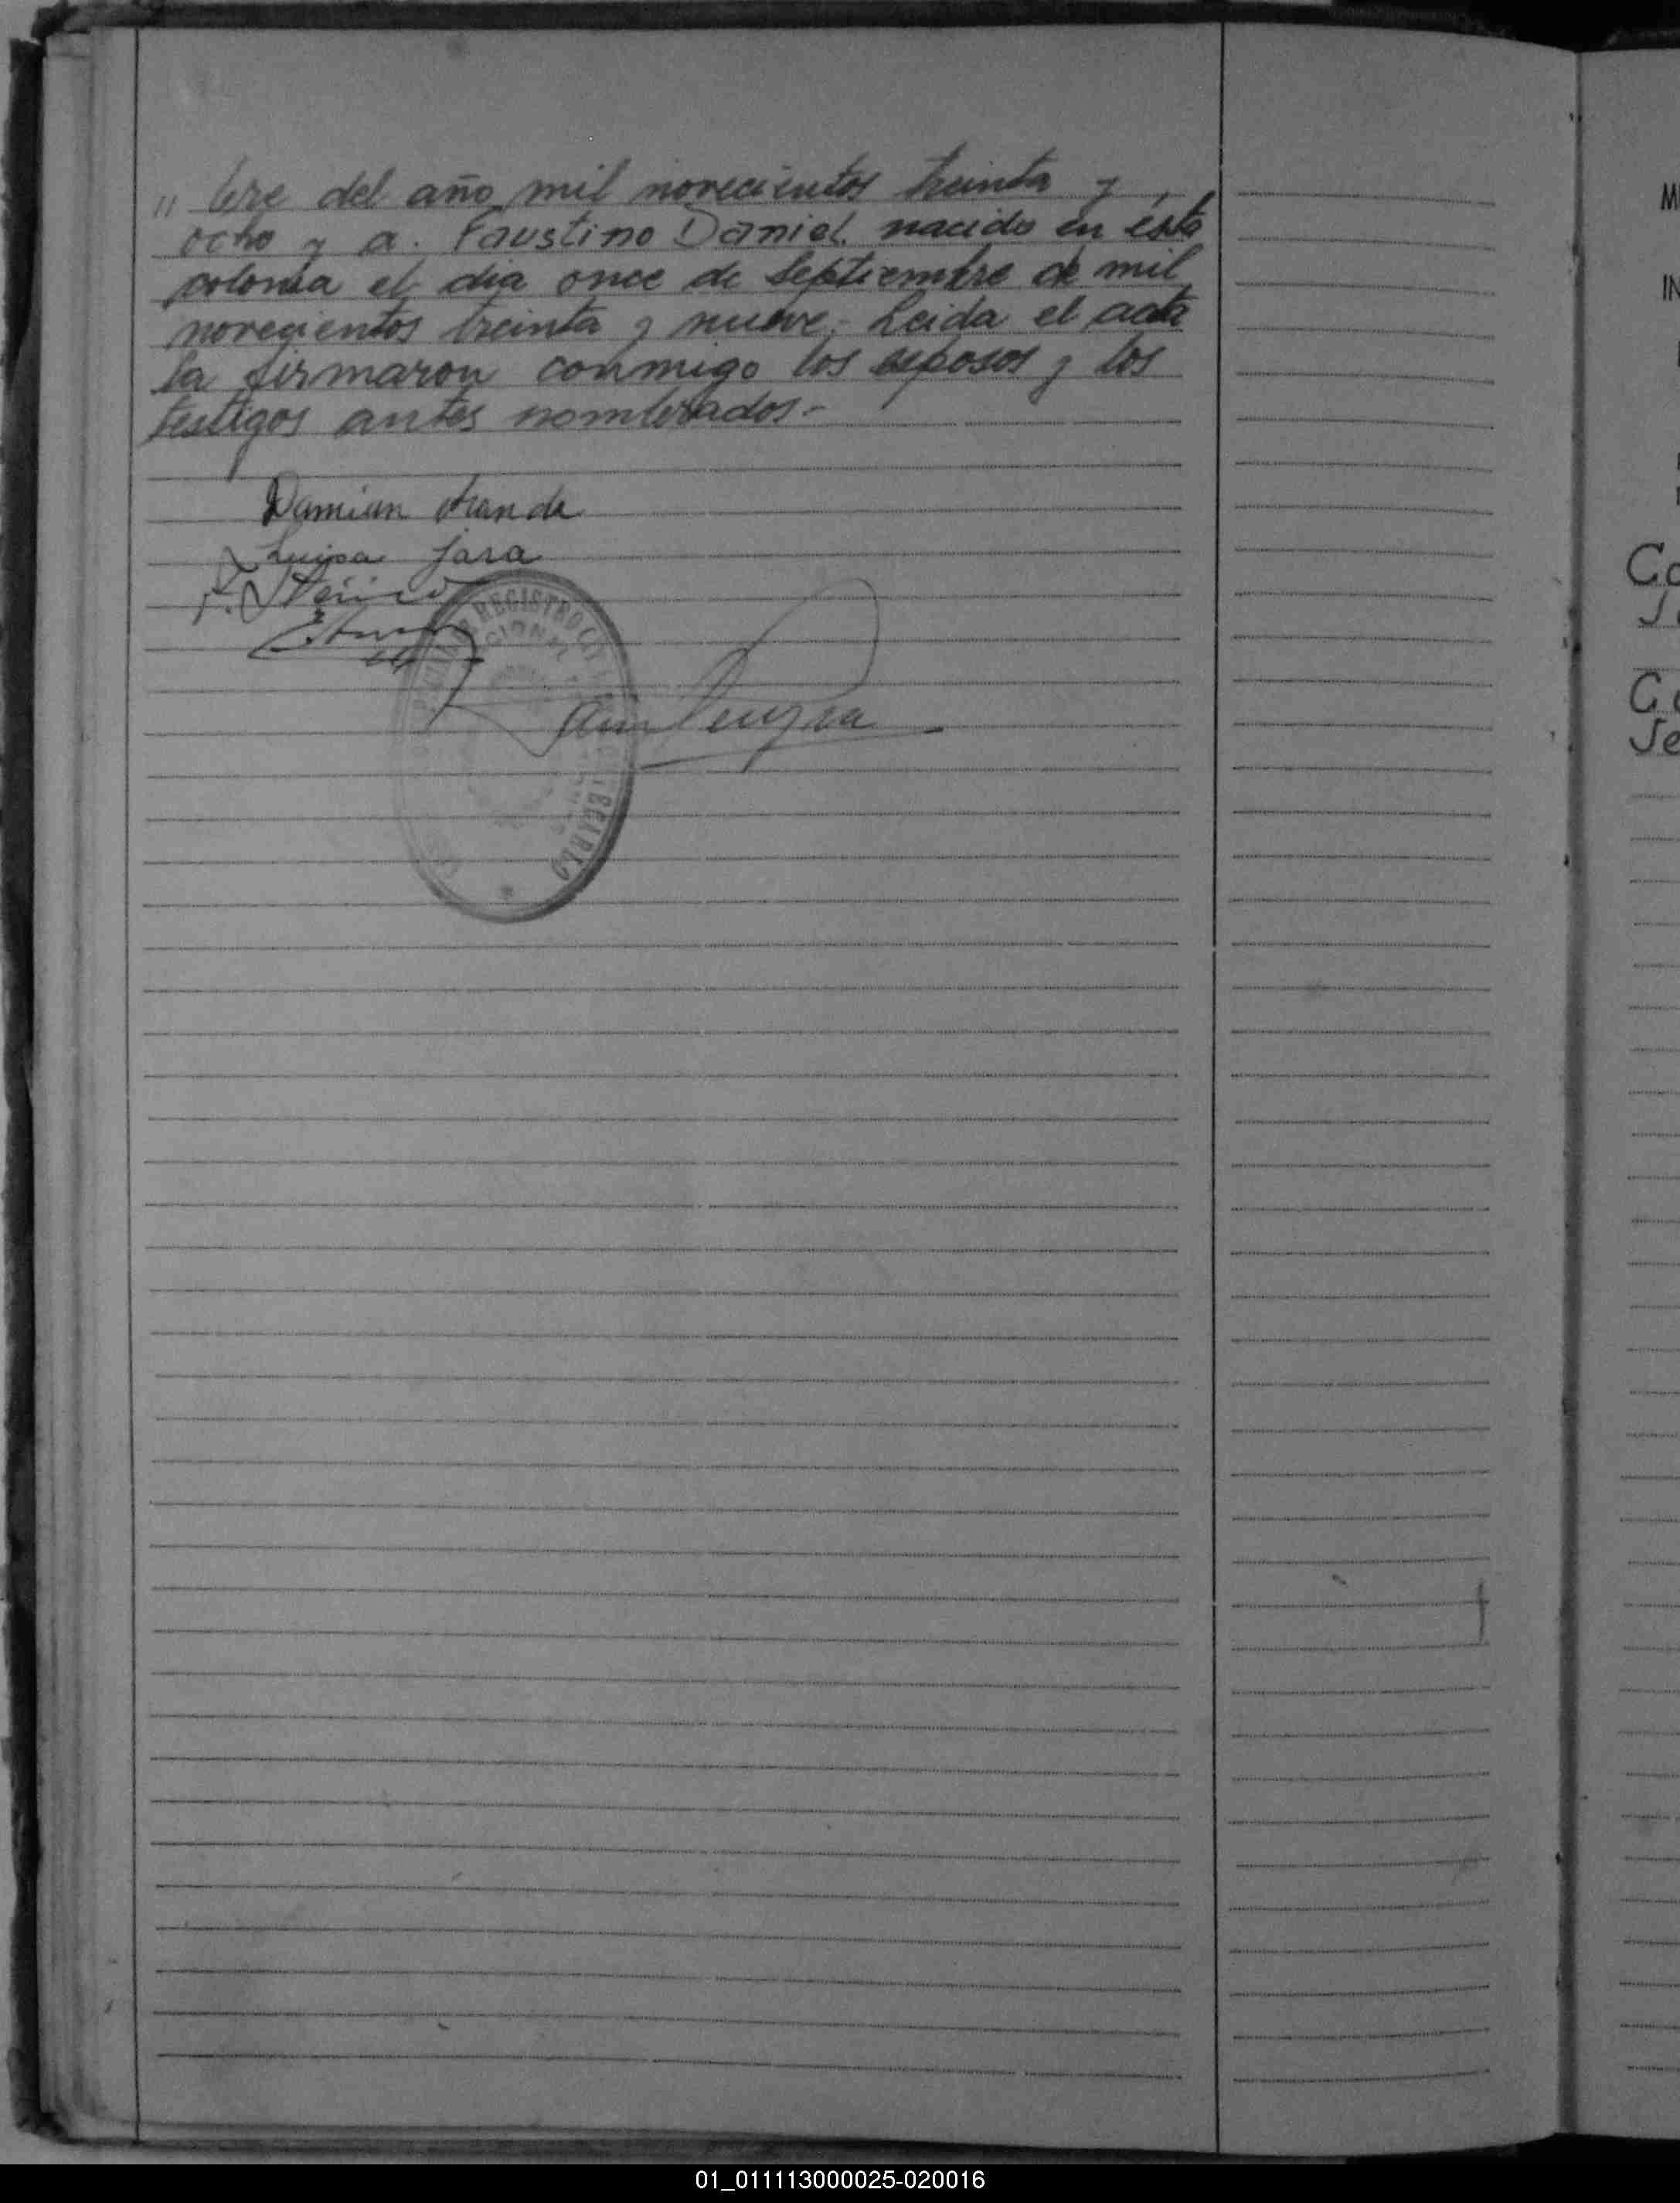 " bre del año mil novecientos treinta y
ocho y a. Faustino Daniel nacido en ésta
colonia el dia once de Septiembre de mil
novecientos treinta y nueve.- Leida el acta
la firmaron conmigo los esposos y los
testigos antes nombrados.-
Damian
Luisa Jara
REGISTRO
M
IN
Co
Co
Je
01_011113000025-020016